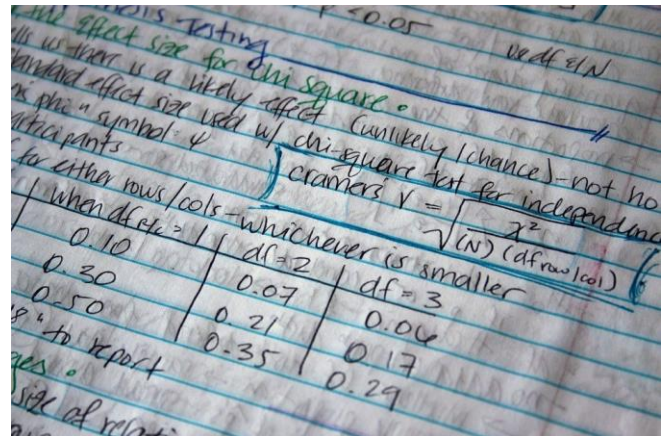 Testing
< 0.05
the effect size for chi square.
w/ there is a likely effect (unlikely/chance)-not no
standard effect size used w/ chi-square test for independence
symbol: φ
participants
cramers V = √ x² / (N)(df row/col)
for either rows/cols - whichever is smaller
when df r/c = 1 df = 2 df = 3
0.10 0.07 0.06
0.30 0.21 0.17
0.50 0.35 0.29
" to report
size of